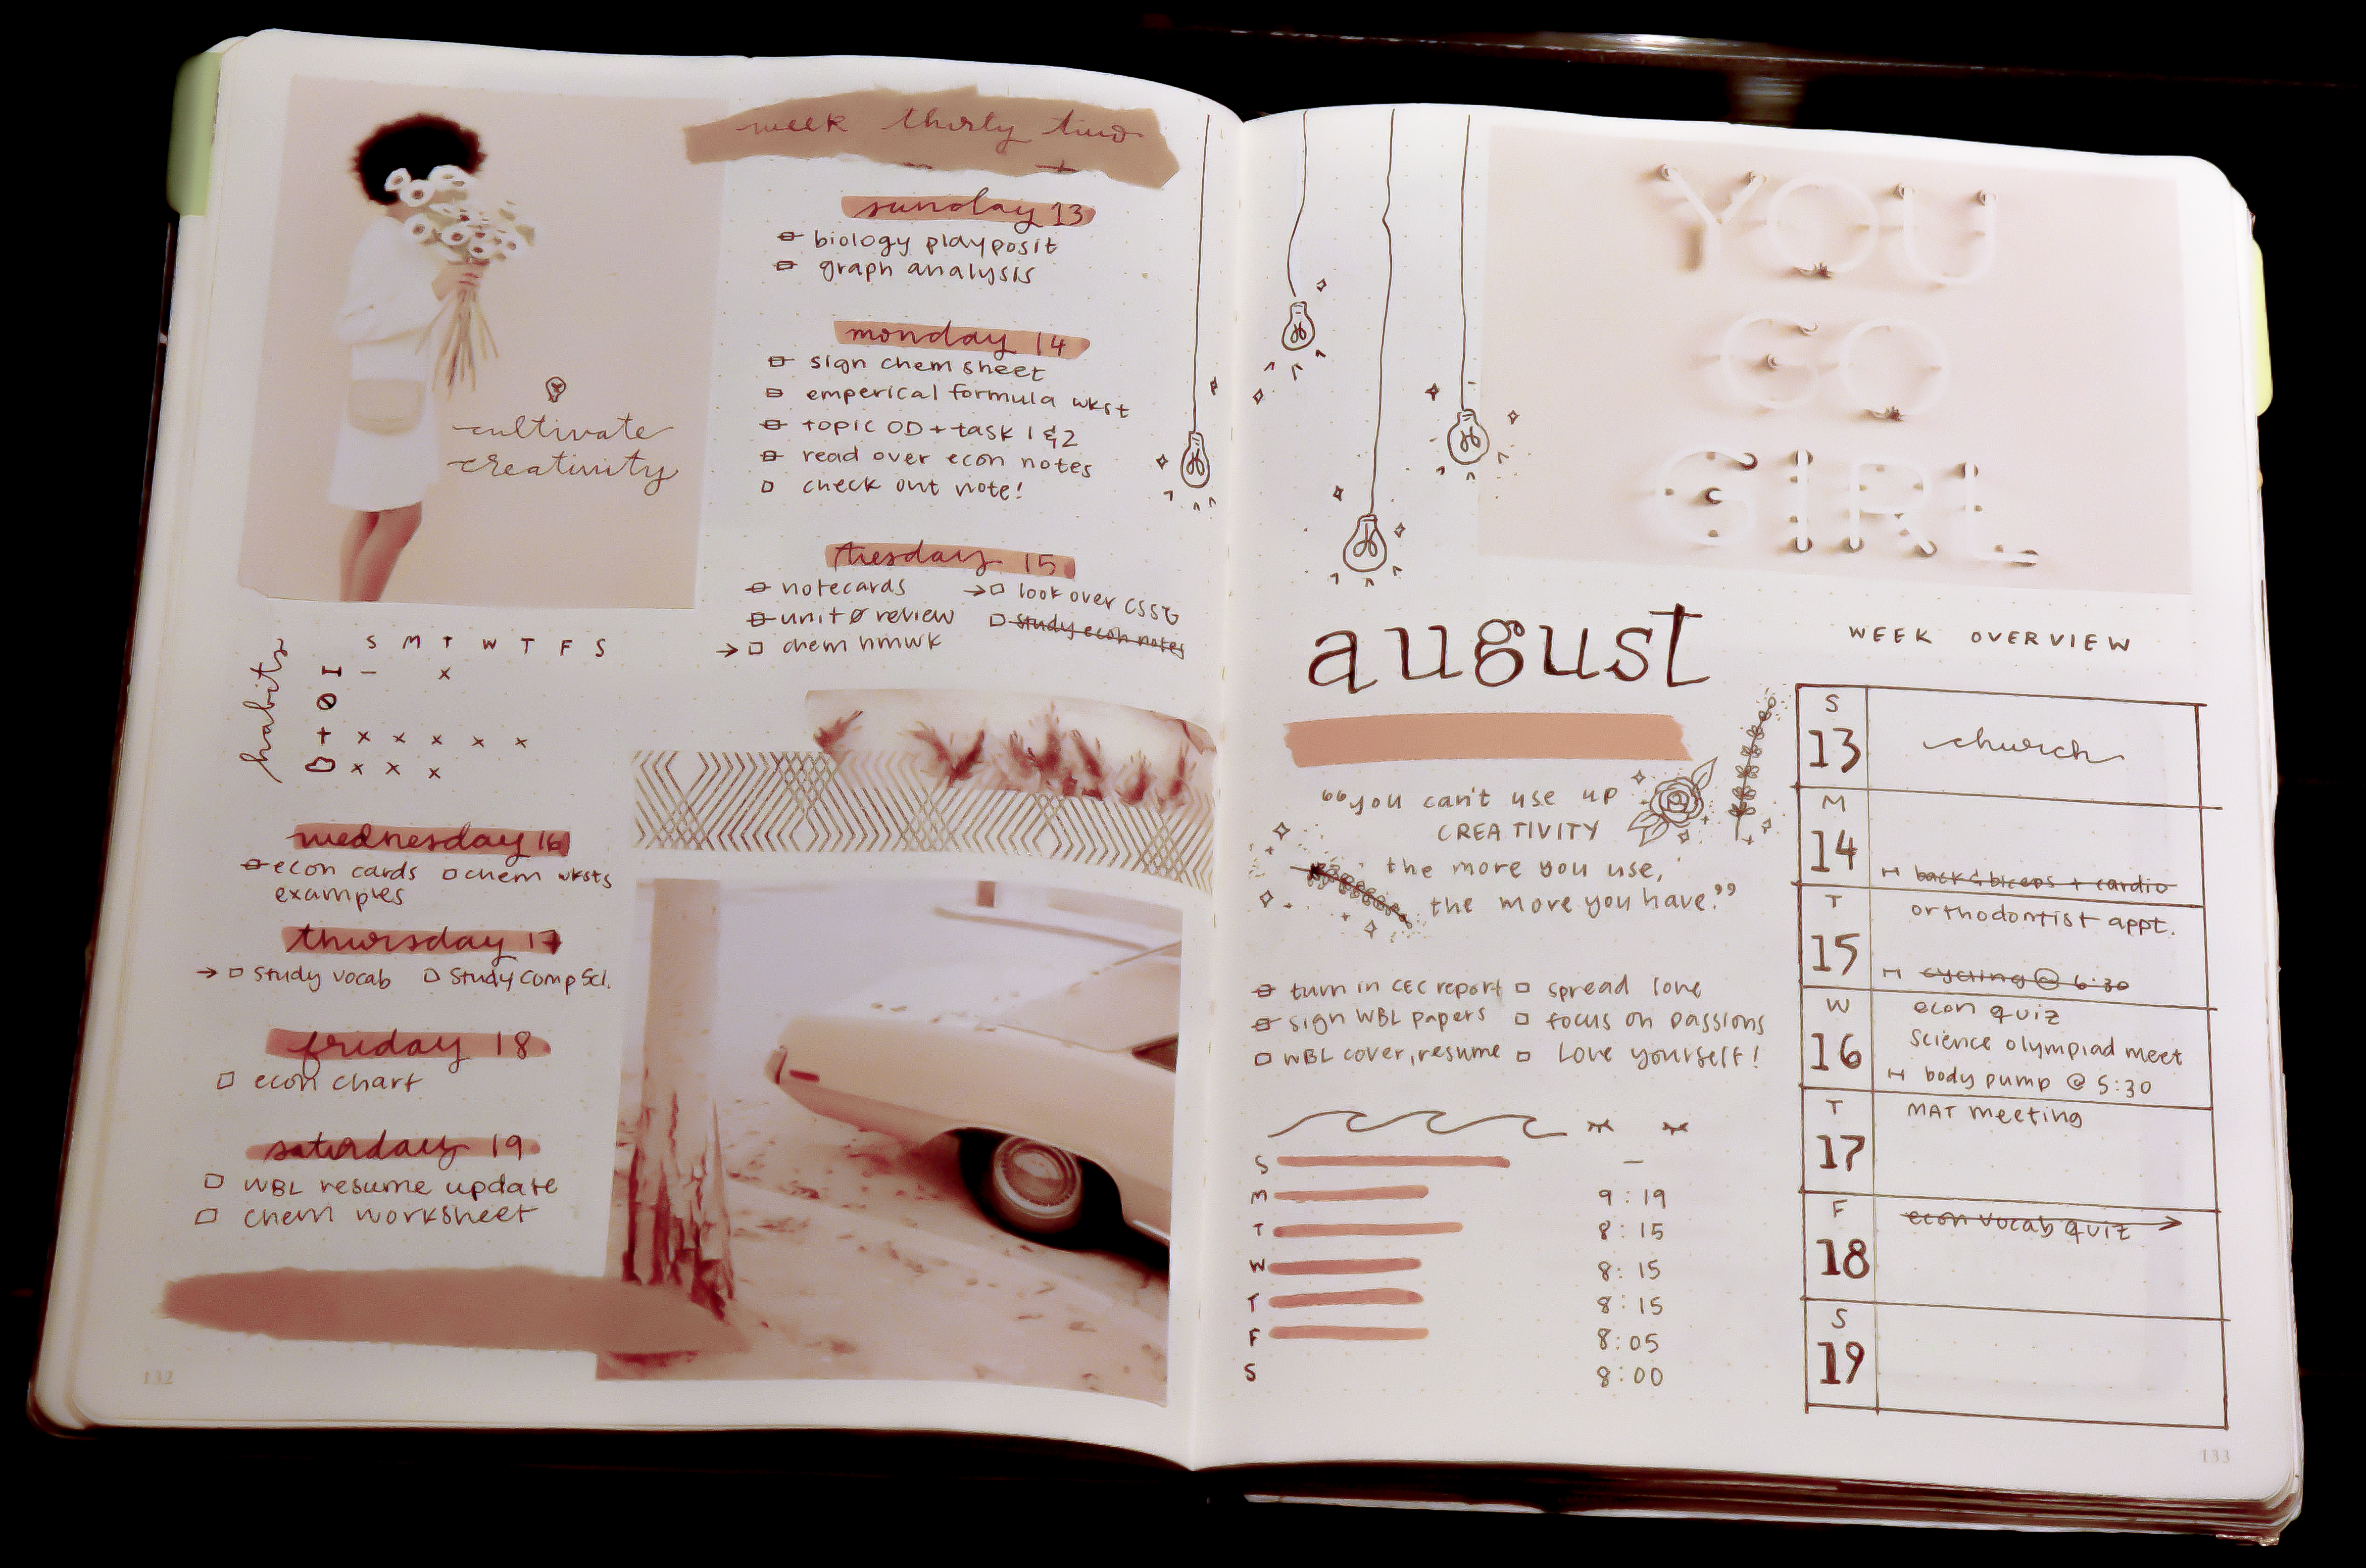 week thirty two
sunday 13
biology playposit
graph analysis
monday 14
sign chem sheet
emperical formula wkst
topic OD + task 1 & 2
read over econ notes
check out note!
tuesday 15
notecards → look over CSSG
unit Ø review study econ notes
→ chem hmwk
cultivate
creativity
habits
S M T W T F S
I — x
+ x x x x x
x x x
wednesday 16
econ cards chem wksts
examples
thursday 17
→ study vocab study comp sci.
friday 18
econ chart
saturday 19
WBL resume update
chem worksheet
132
YOU
GO
GIRL
august
"you can't use up
CREATIVITY
the more you use,
the more you have."
turn in CEC report spread love
sign WBL papers focus on passions
WBL cover, resume love yourself!
S —
M 9:19
T 8:15
W 8:15
T 8:15
F 8:05
S 8:00
WEEK OVERVIEW
S
13 church
M
14
back & biceps + cardio
T orthodontist appt.
15
cycling @ 6:30
W econ quiz
16 science olympiad meet
body pump @ 5:30
T MAT meeting
17
F econ vocab quiz →
18
S
19
133